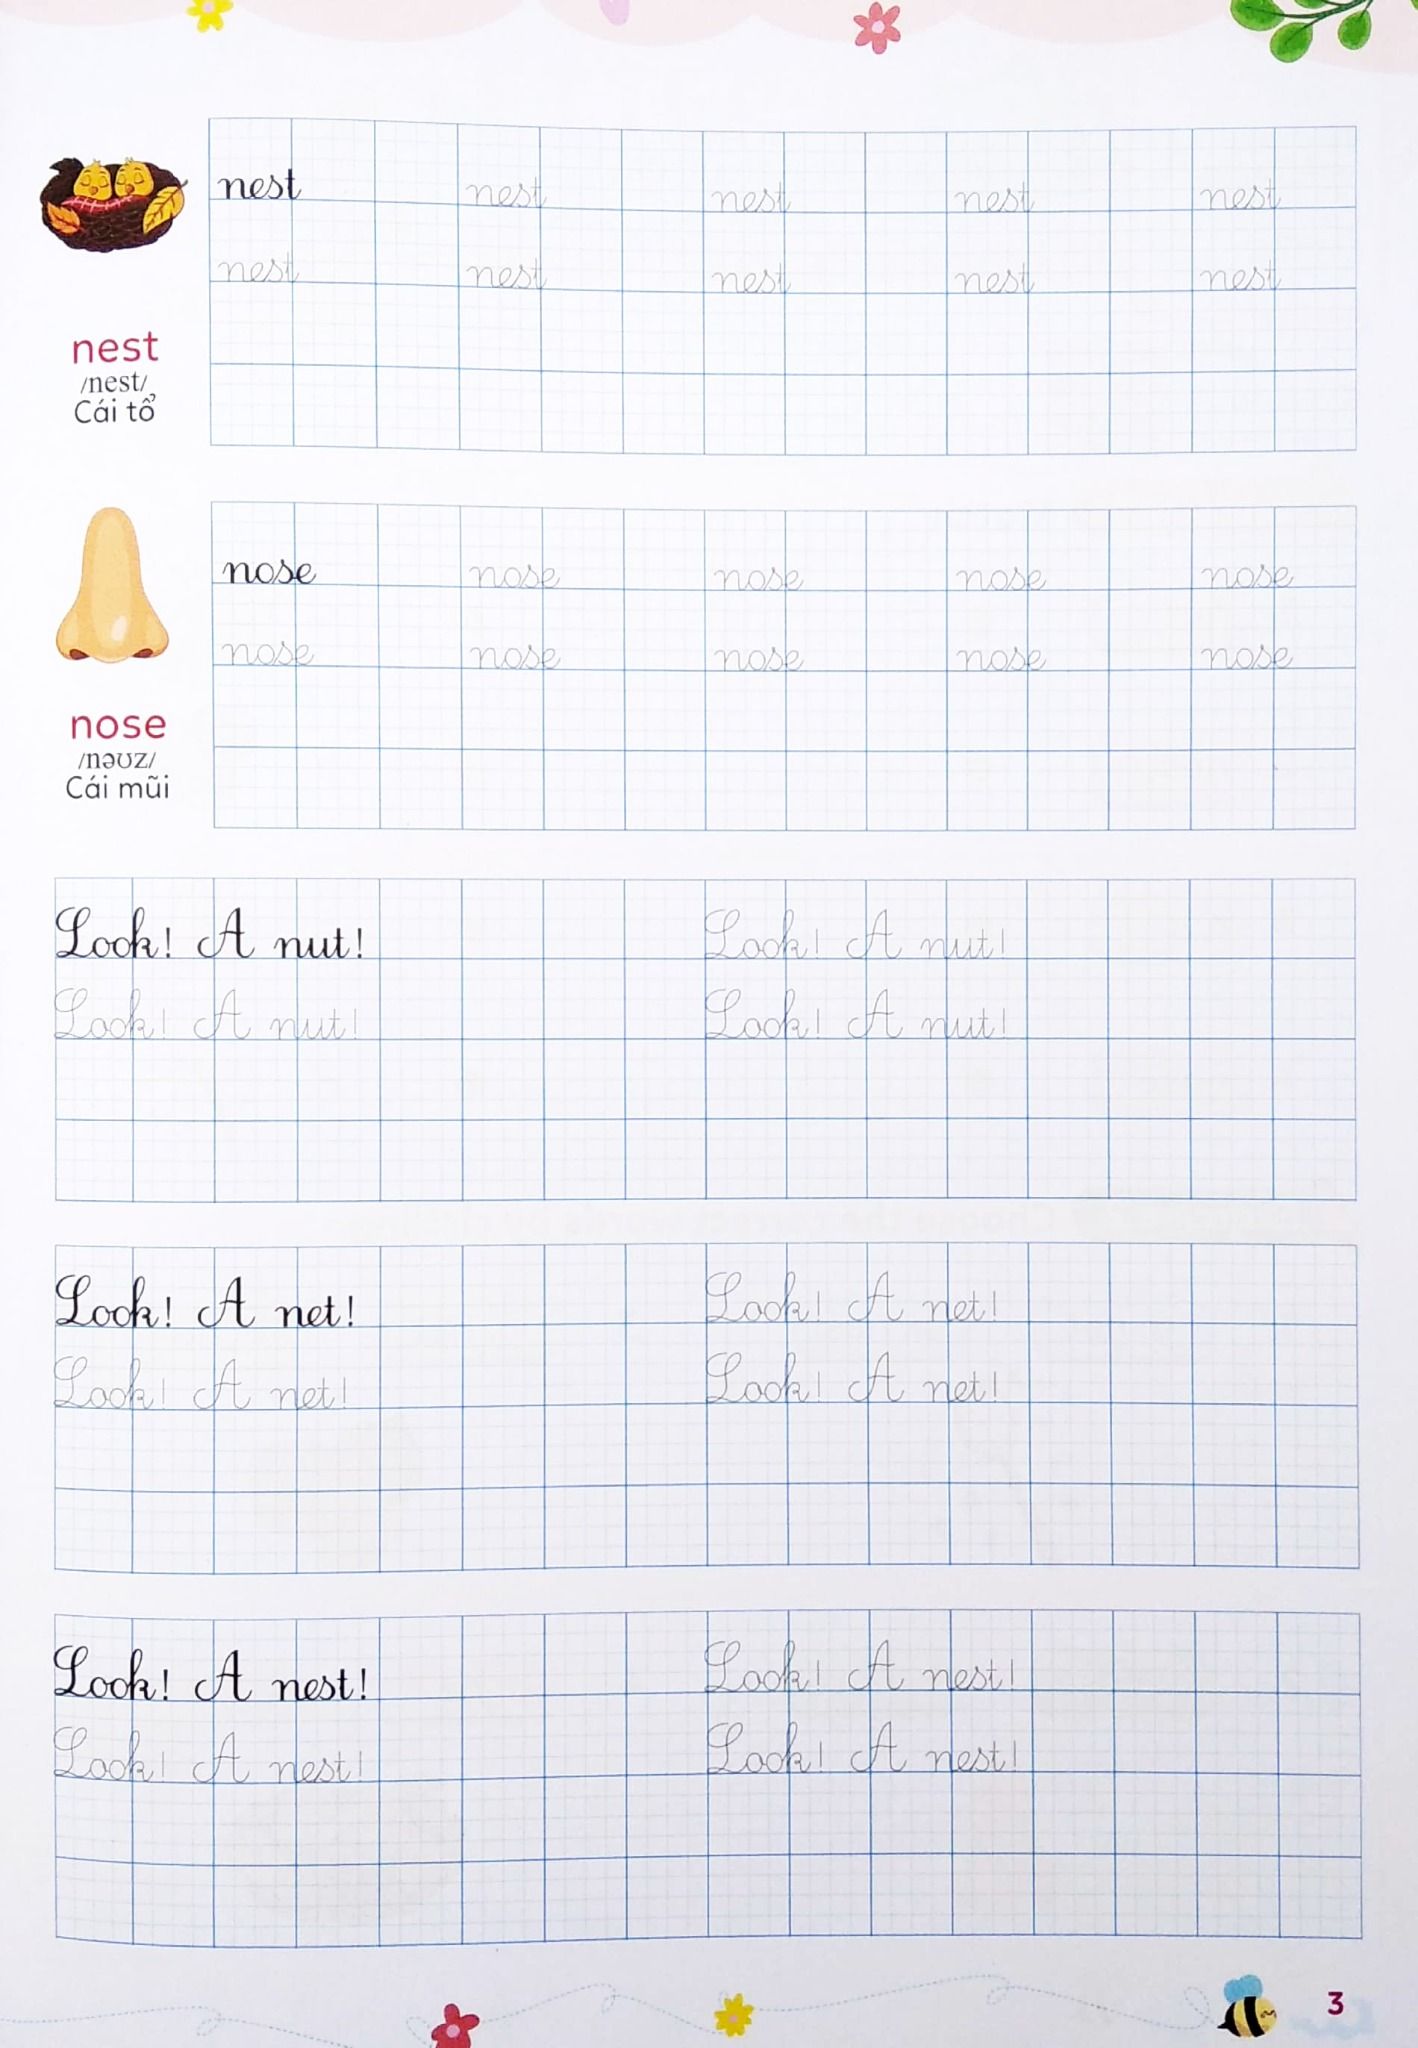 nest nest nest nest nest
nest nest nest nest nest
nest
/nest/
Cái tổ
nose nose nose nose nose
nose nose nose nose nose
nose
/nəʊz/
Cái mũi
Look! A nut! Look! A nut!
Look! A nut! Look! A nut!
Look! A net! Look! A net!
Look! A net! Look! A net!
Look! A nest! Look! A nest!
Look! A nest! Look! A nest!
3